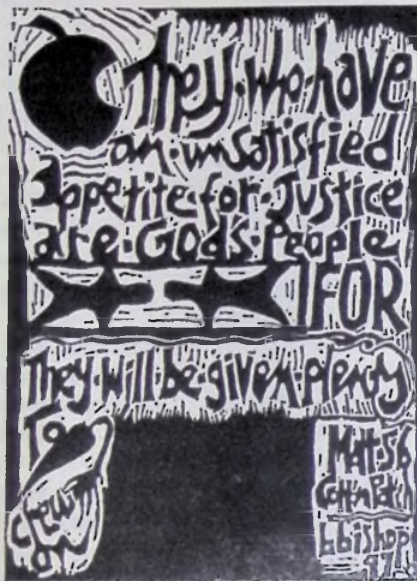 They·who·have
an·unsatisfied
appetite·for·Justice
are·God's·People
FOR
They·will·be·given·plenty
To
chew
on
Matt·5:6
Cott'n Patch
bbishop
97